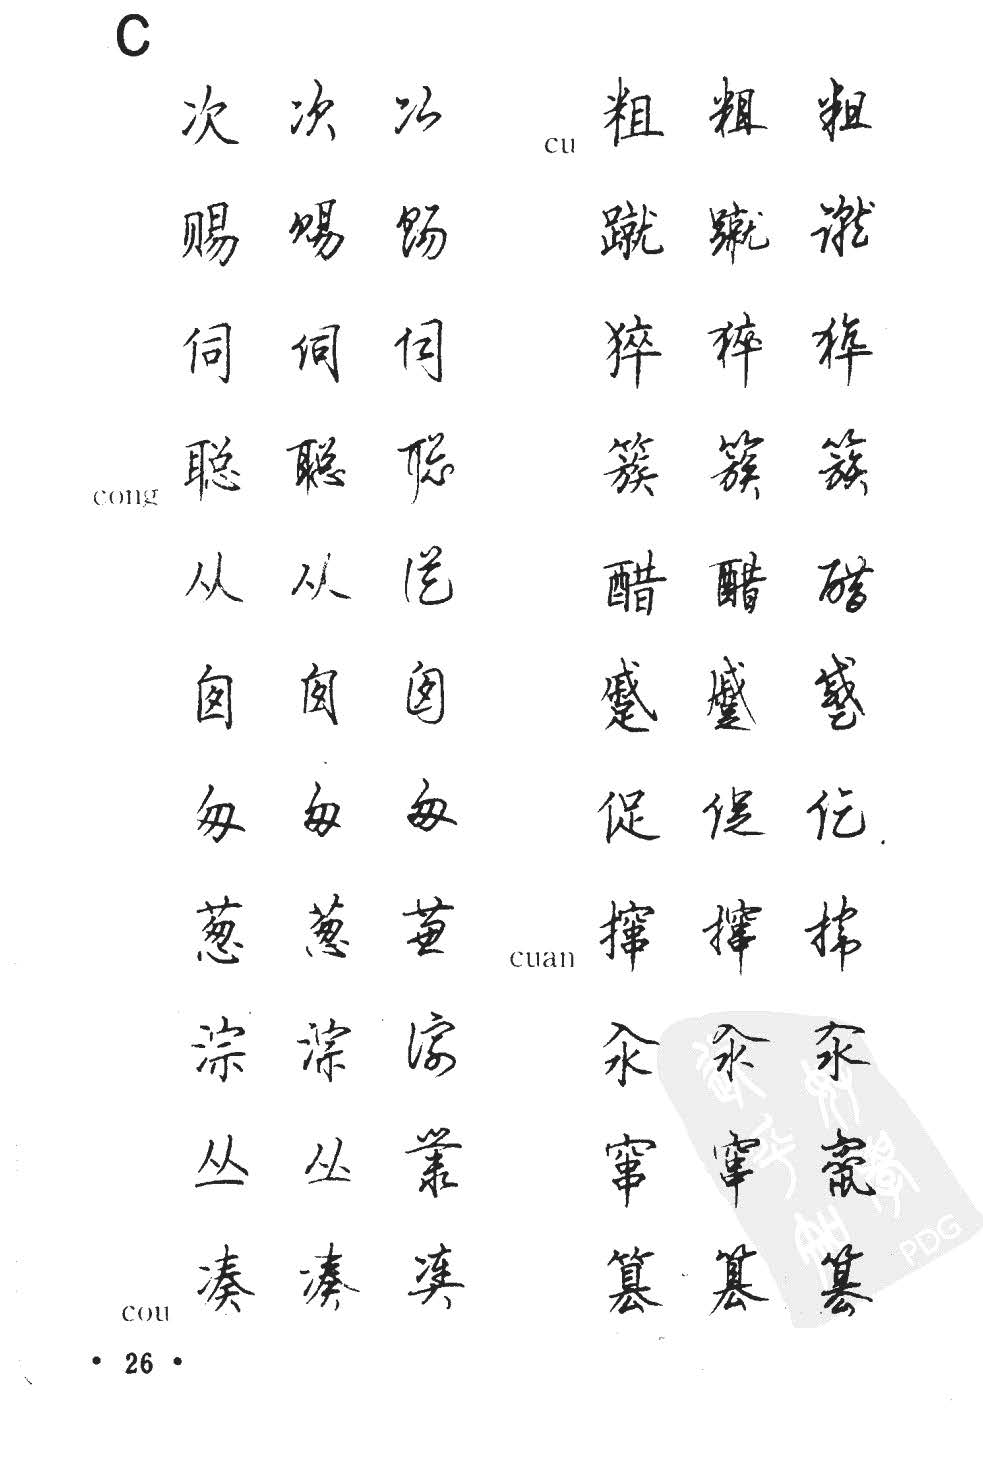 C
次 次 次
赐 赐 赐
伺 伺 伺
cong 聪 聪 聪
从 从 從
囱 囱 囱
匆 匆 匆
葱 葱 葱
淙 淙 淙
丛 丛 叢
cou 凑 凑 凑
cu 粗 粗 粗
蹴 蹴 蹴
猝 猝 猝
簇 簇 簇
醋 醋 醋
蹙 蹙 蹙
促 促 促
cuan 撺 撺 撺
汆 汆 汆
窜 窜 竄
篡 篡 篡
• 26 •
PDG